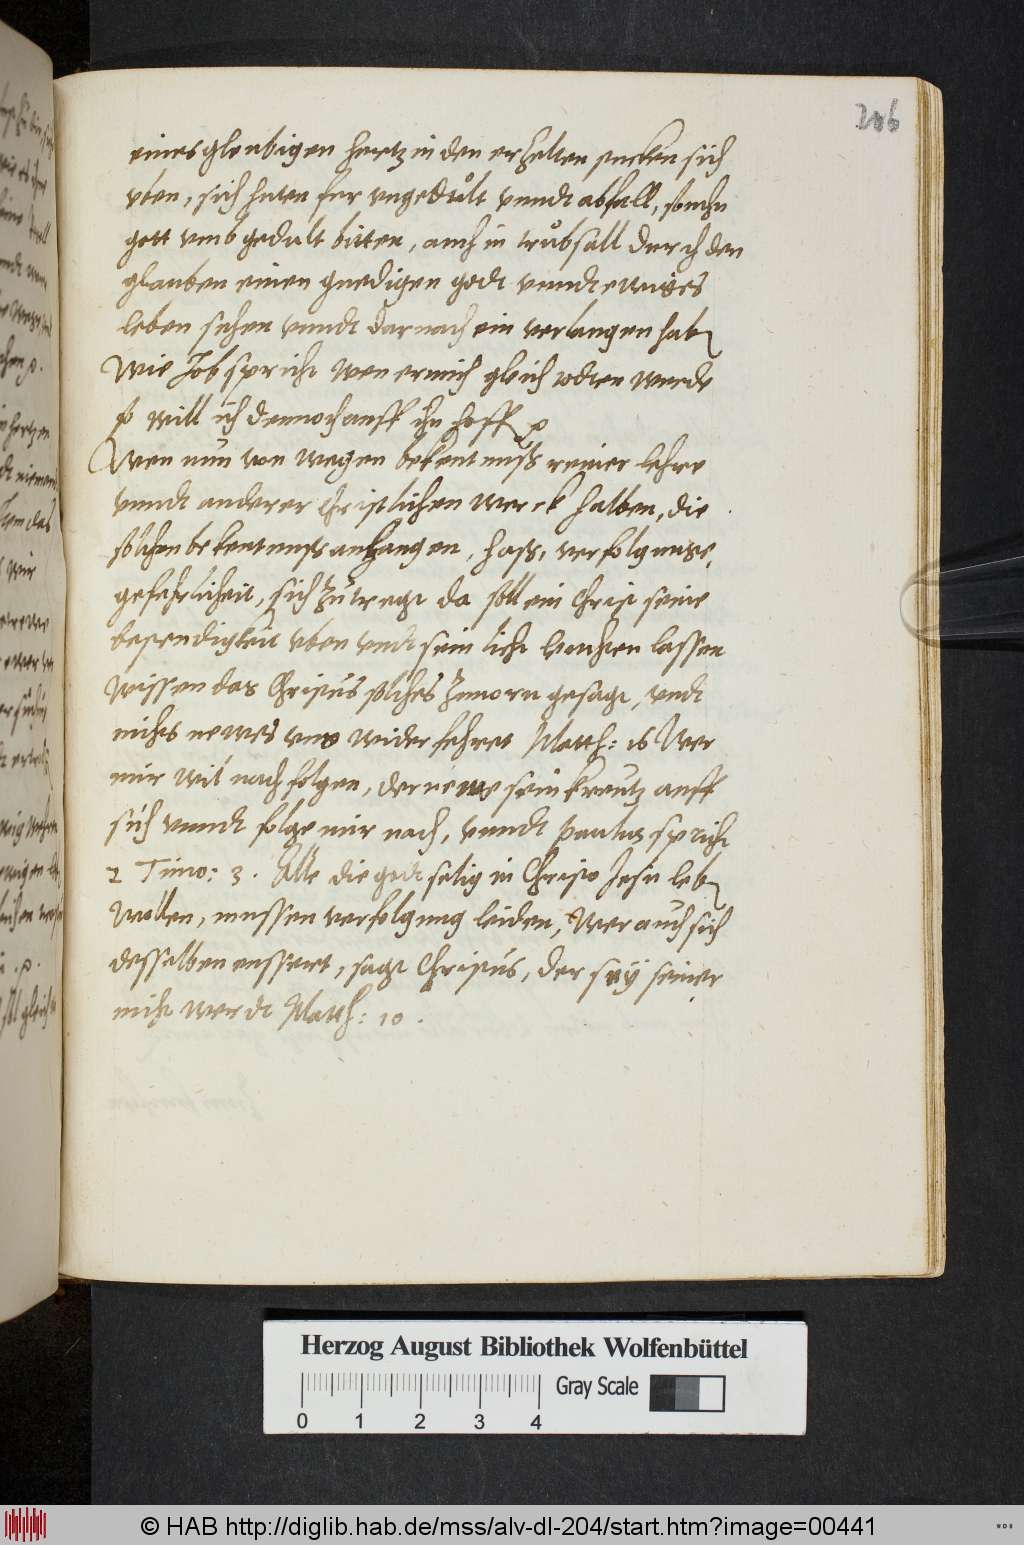 206
eines gleubigen hertz in den erhelten stucken sich
vben, sich huten fur vngedult vnndt abfall, sonder
gott vmb gedult bitten, auch in trubsall durch den
glauben einen gnedigen godt vnndt ewiges
leben sehen vnndt darnach ein verlangen haben
Wie Job spricht Wen er mich gleich todten wurde
so will ich dennoch auff ihn hoffen
Wen nun von wegen bekentnuss reiner lehre
vnndt anderer Christlichen werck halben, die
solchen bekentnuss anhangen, hass, verfolgunge,
gefehrlicheit, sich zutregt da soll ein Christ seine
bestendigkeit vben vndt sein licht leuchten lassen
Wissen das Christus solches zuuorn gesagt, vndt
nichts newes vns widerfehret Matth: 16 Wer
mir wil nachfolgen, der neme sein kreutz auff
sich vnndt folge mir nach, vnndt paulus spricht
2 Timo: 3. Alle die godtselig in Christo Jesu leben
Wollen, mussen verfolgung leiden, Wer auch sich
desselben eussert, sagt Christus, der sey seiner
nicht werdt Matth: 10.
Herzog August Bibliothek Wolfenbüttel
Gray Scale
0 1 2 3 4
© HAB http://diglib.hab.de/mss/alv-dl-204/start.htm?image=00441